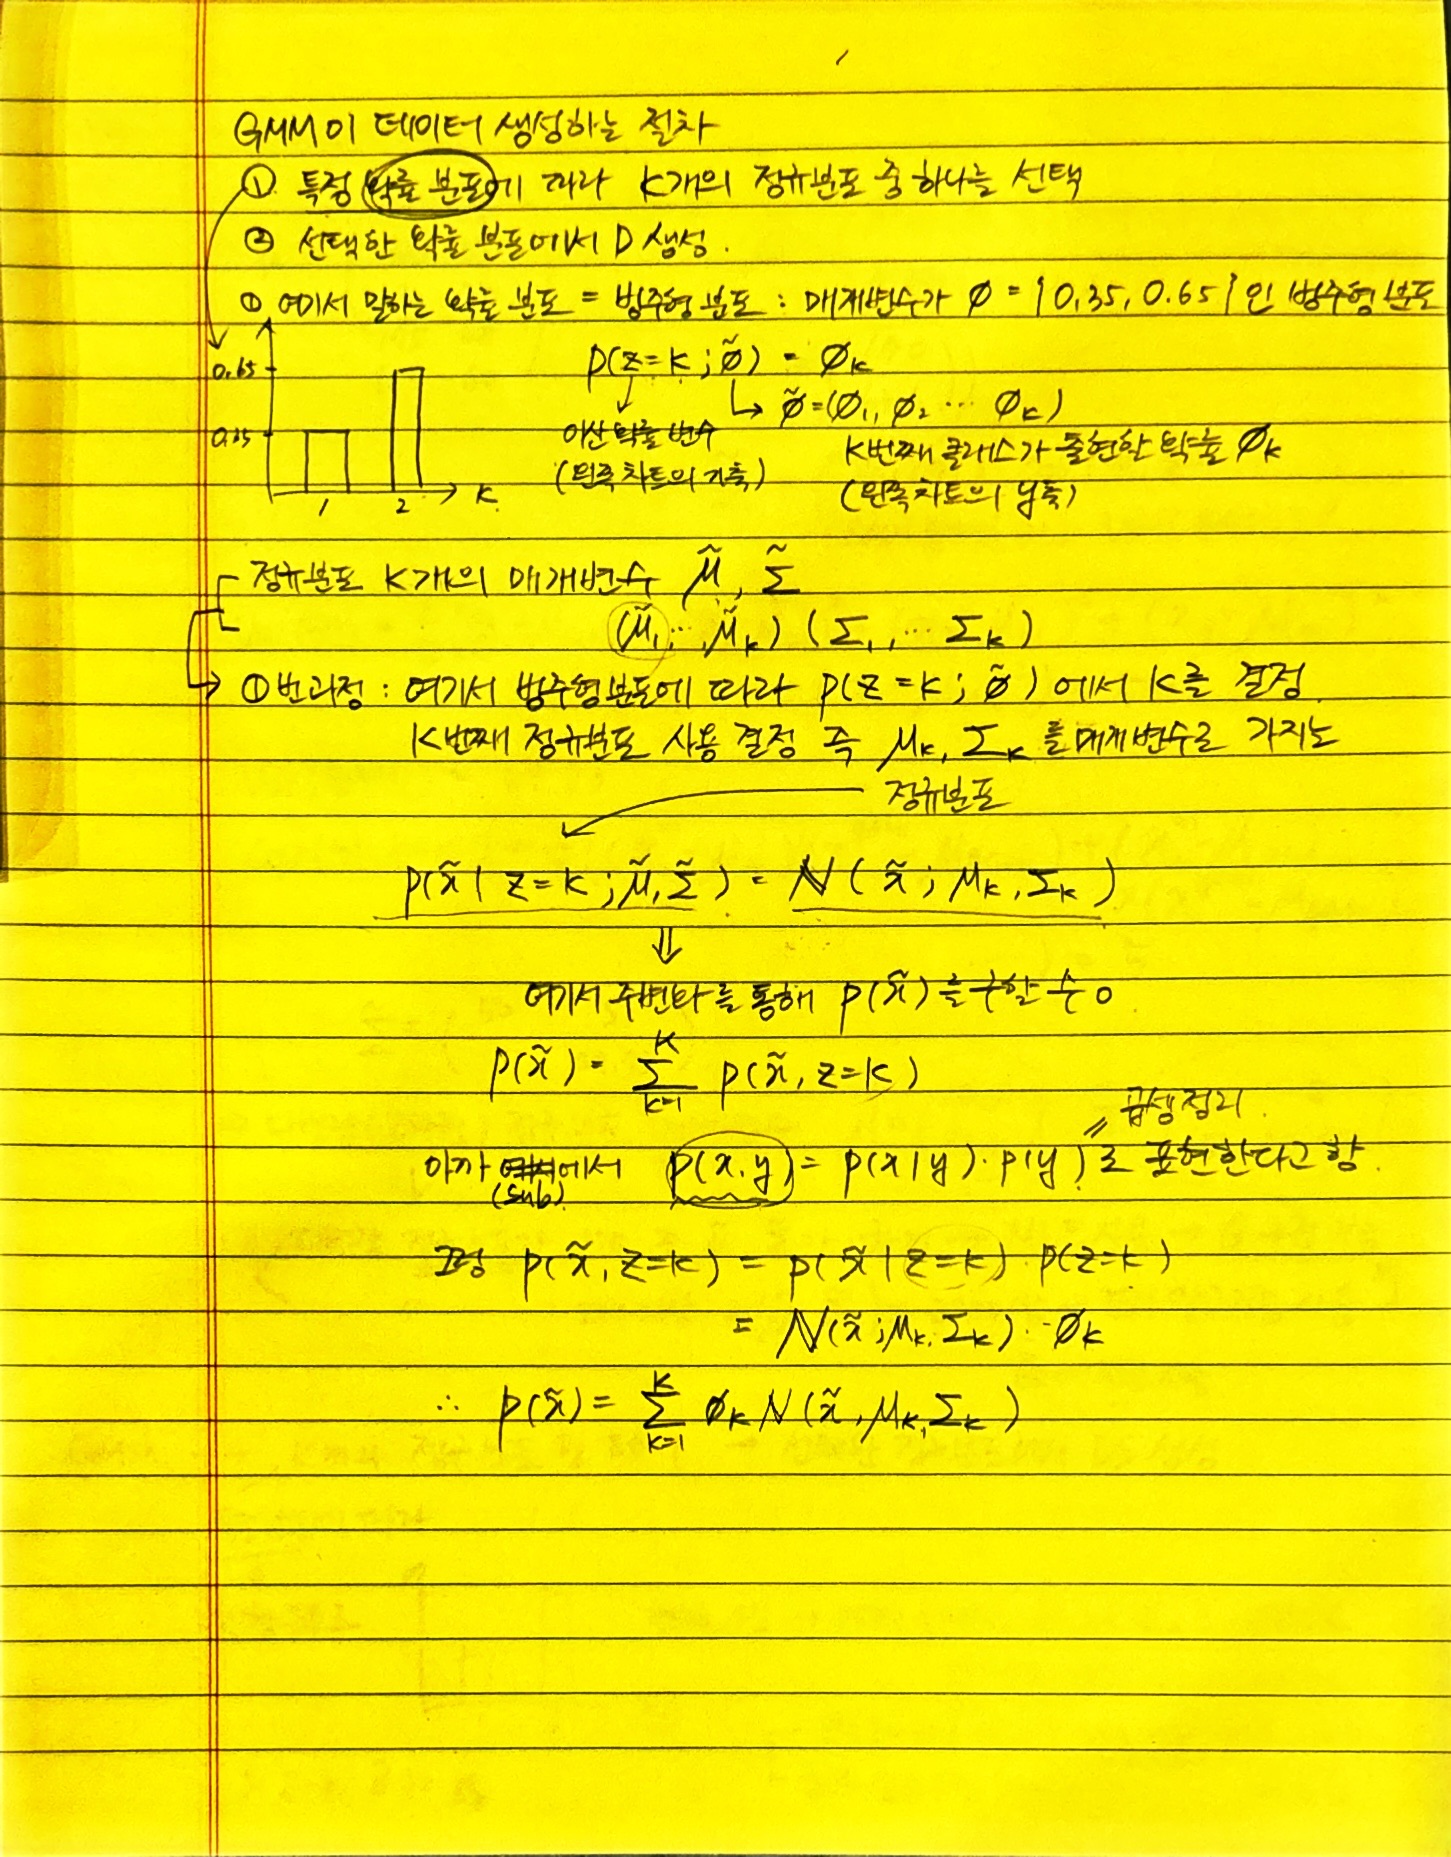 GMM이 데이터 생성하는 절차
① 특정 확률 분포에 따라 K개의 정규분포 중 하나를 선택
② 선택한 확률 분포에서 D 생성.
① 여기서 말하는 확률 분포 = 범주형 분포 : 매개변수가 ø = {0.35, 0.65}인 범주형 분포
0.65
0.35
1 2 K
p(z=k ; ø̃) = øk
ø̃=(ø1, ø2 ... øk)
이산 확률 변수
(왼쪽 차트의 x축)
K번째 클래스가 출현할 확률 øk
(왼쪽 차트의 y축)
정규분포 K개의 매개변수 μ̃, Σ̃
(μ̃1, ..., μ̃k) (Σ1, ... Σk)
①번과정 : 여기서 범주형분포에 따라 p(z=k ; ø̃) 에서 K를 결정
K번째 정규분포 사용 결정 즉 μk, Σk 를 매개변수로 가지는
정규분포
p(x̃ | z=k ; μ̃, Σ̃) = N(x̃ ; μk, Σk)
⇓
여기서 주변화를 통해 p(x̃)를 구할 수 o
p(x̃) = Σ(k=1→K) p(x̃, z=k)
곱셈정리
아까 에서 p(x, y) = p(x|y)·p(y) 로 표현한다고 함.
(sub)
그럼 p(x̃, z=k) = p(x̃ | z=k)·p(z=k)
= N(x̃ ; μk, Σk)·øk
∴ p(x̃) = Σ(k=1→K) øk N(x̃, μk, Σk)